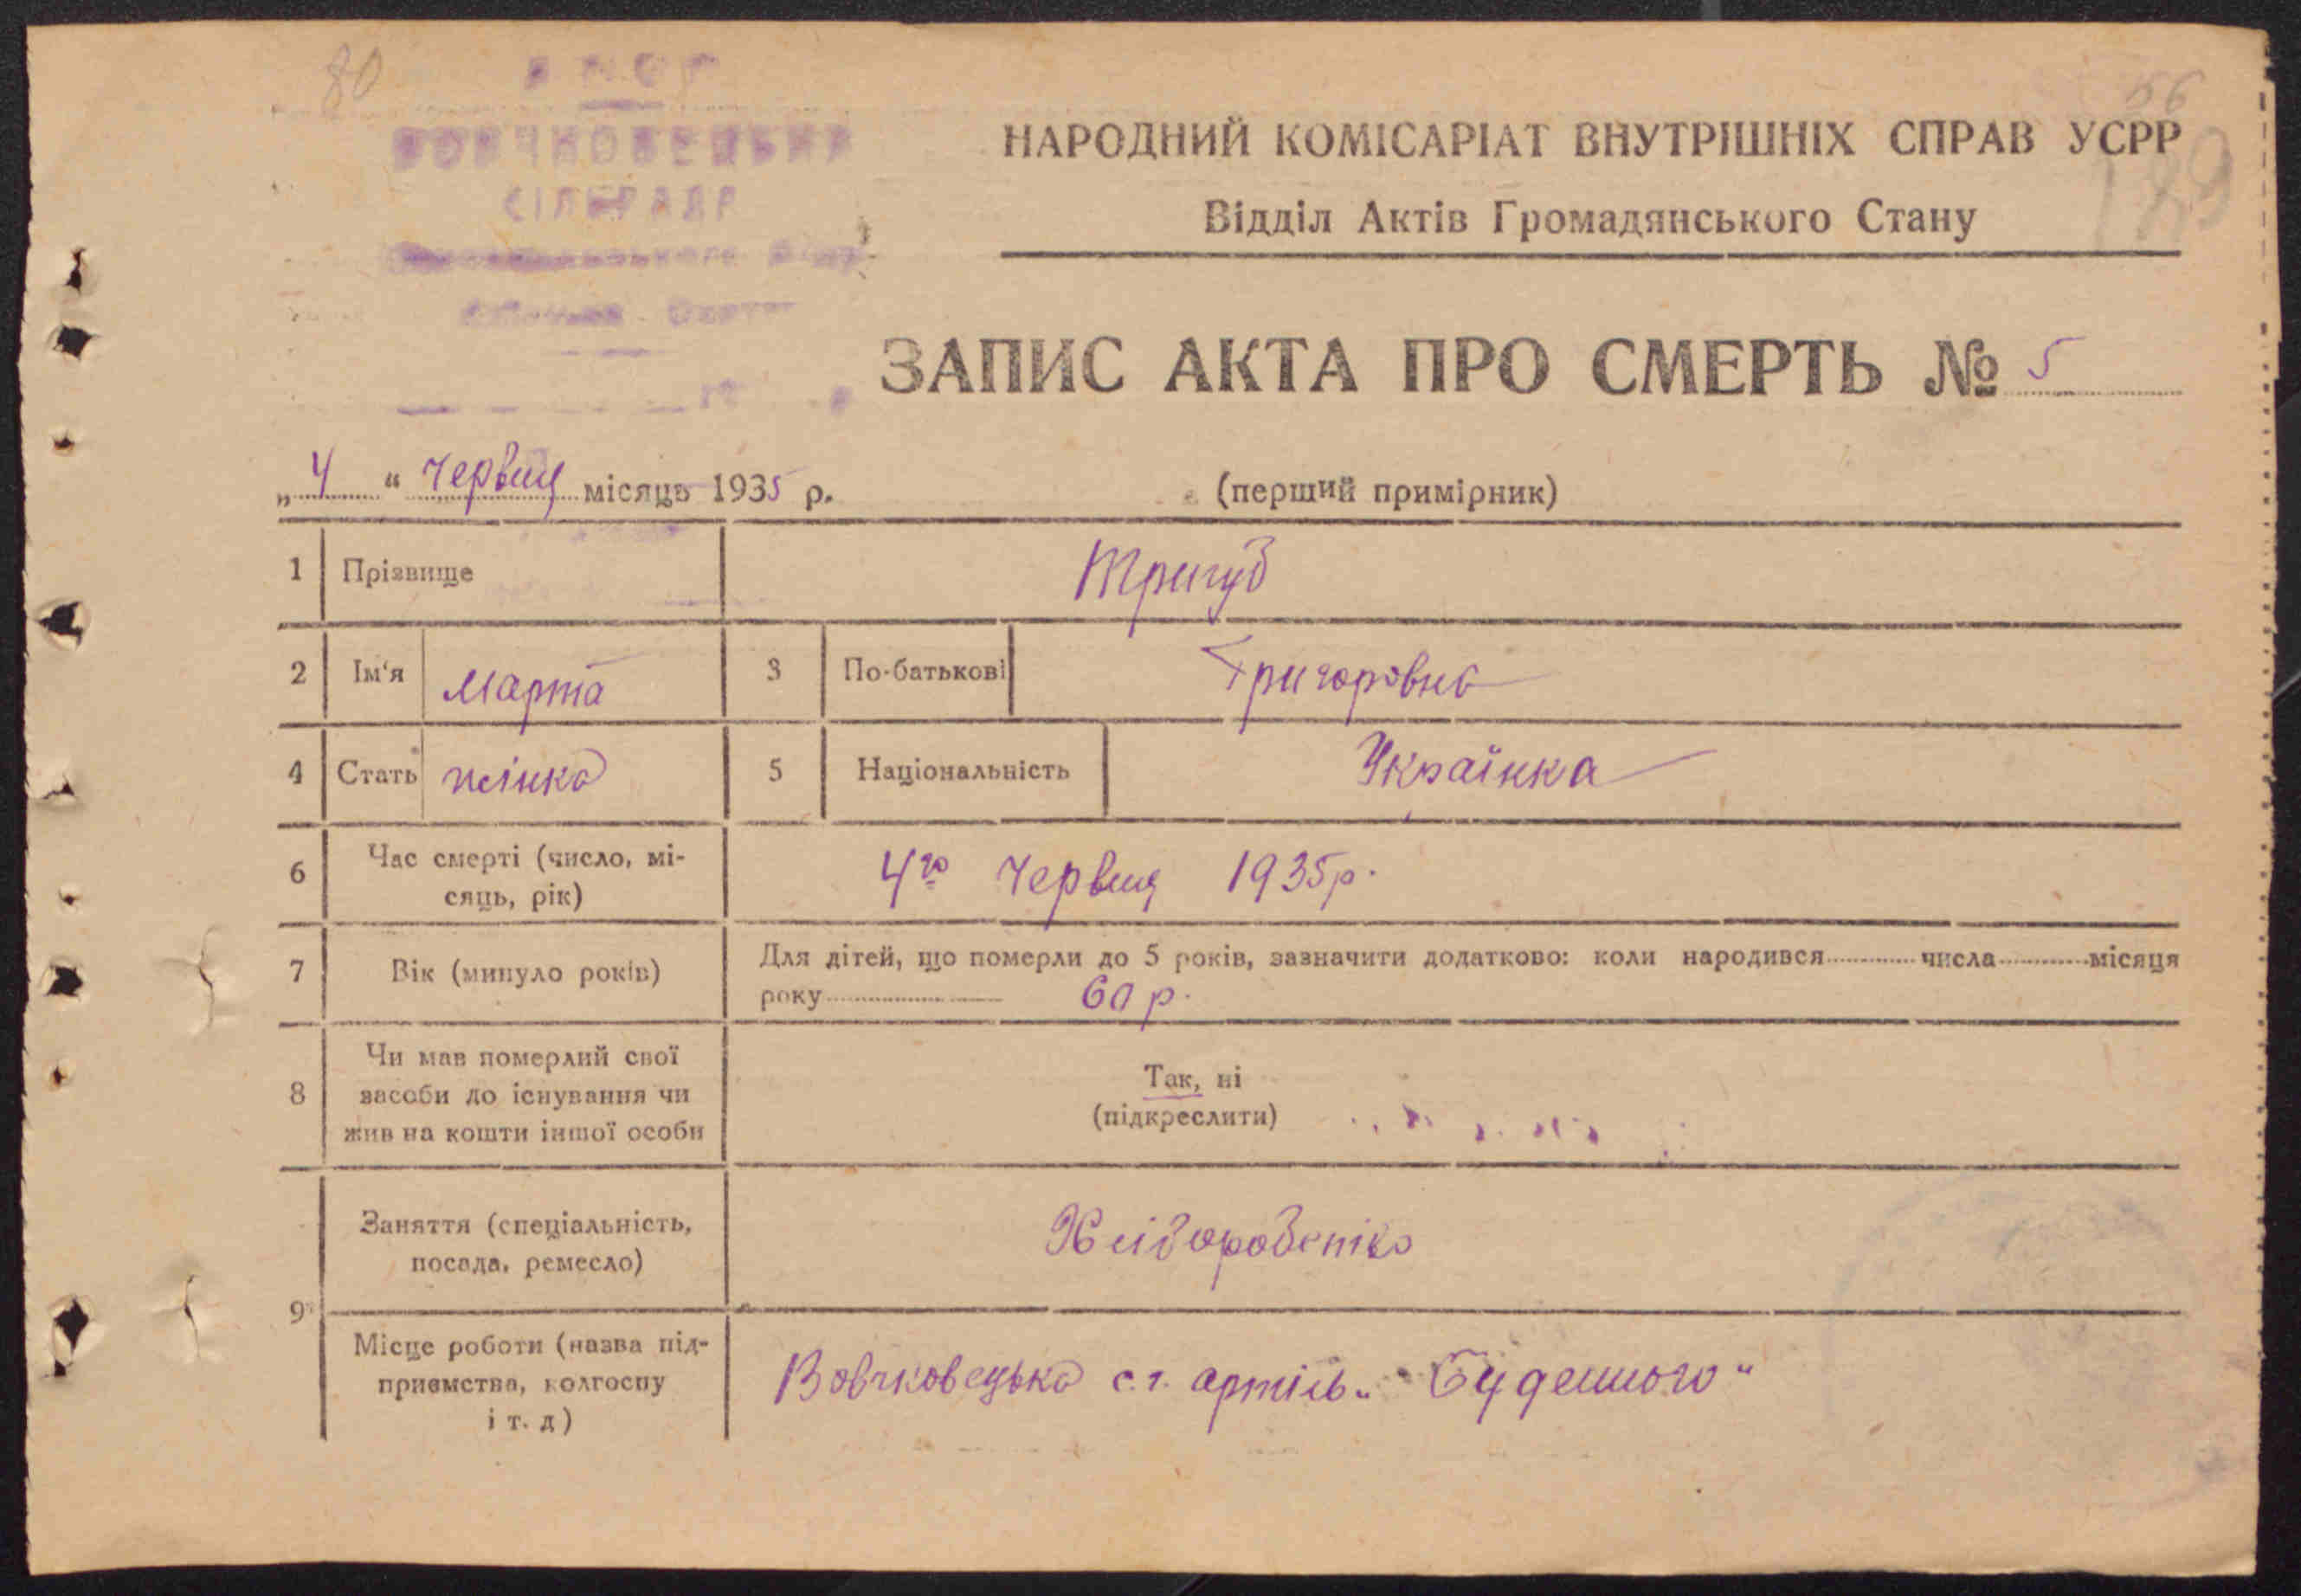 80
56
189
УСРР
ВОВЧКОВЕЦЬКА
СІЛЬРАДА
НАРОДНИЙ КОМІСАРІАТ ВНУТРІШНІХ СПРАВ УСРР
Відділ Актів Громадянського Стану
ЗАПИС АКТА ПРО СМЕРТЬ № 5
„4“ Червня місяць 1935 р. (перший примірник)
1 Прізвище Тригуб
2 Ім'я Марта 3 По-батькові Григоровна
4 Стать жінка 5 Національність Українка
6 Час смерті (число, мі-
сяць, рік) 4го Червня 1935р.
7 Вік (минуло років) Для дітей, що померли до 5 років, зазначити додатково: коли народився числа місяця
року 60 р.
8 Чи мав померлий свої
засоби до існування чи
жив на кошти іншої особи
Так, ні
(підкреслити)
9 Заняття (спеціальність,
посада, ремесло) Хліборобство
Місце роботи (назва під-
приємства, колгоспу
і т. д) Вовчковецька с.г. артіль „Буденного"